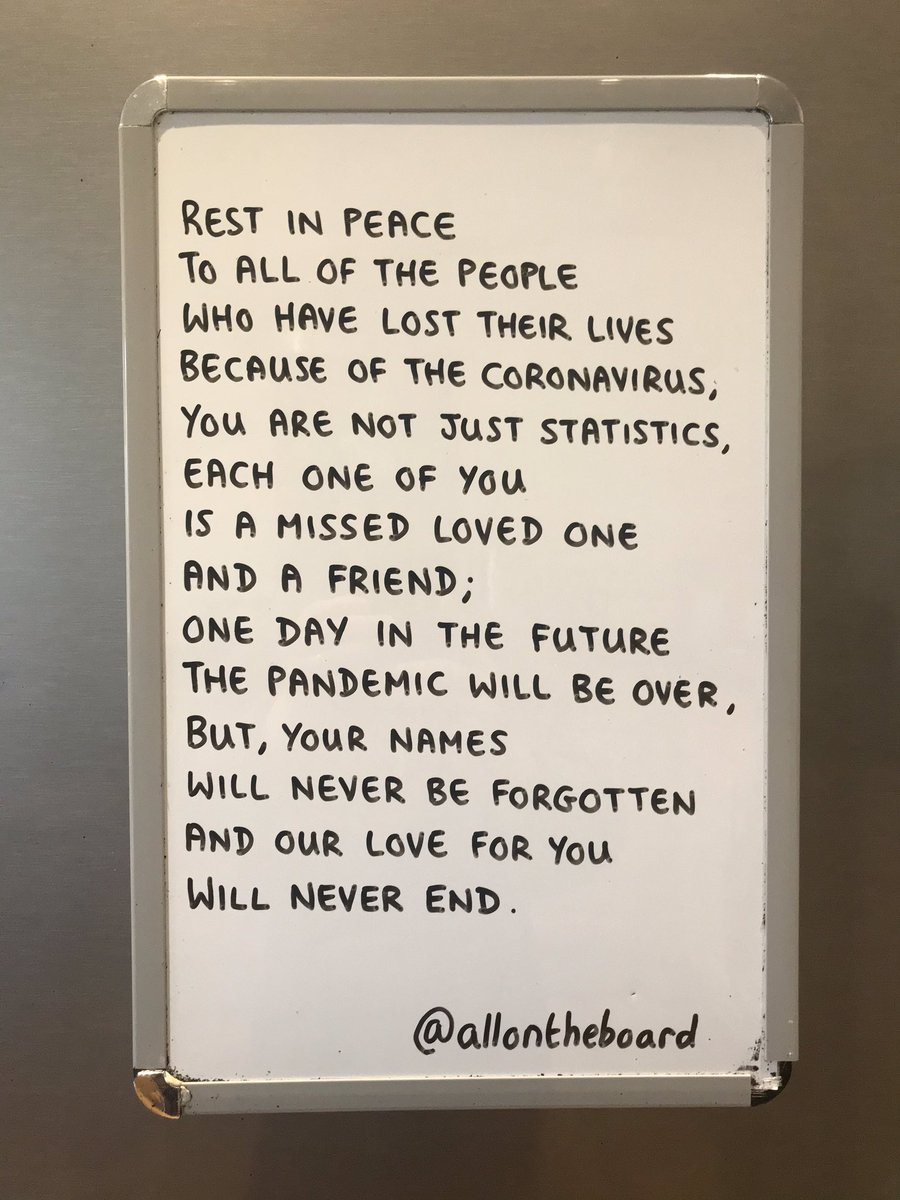 REST IN PEACE
TO ALL OF THE PEOPLE
WHO HAVE LOST THEIR LIVES
BECAUSE OF THE CORONAVIRUS,
YOU ARE NOT JUST STATISTICS,
EACH ONE OF YOU
IS A MISSED LOVED ONE
AND A FRIEND;
ONE DAY IN THE FUTURE
THE PANDEMIC WILL BE OVER,
BUT, YOUR NAMES
WILL NEVER BE FORGOTTEN
AND OUR LOVE FOR YOU
WILL NEVER END.
@allontheboard